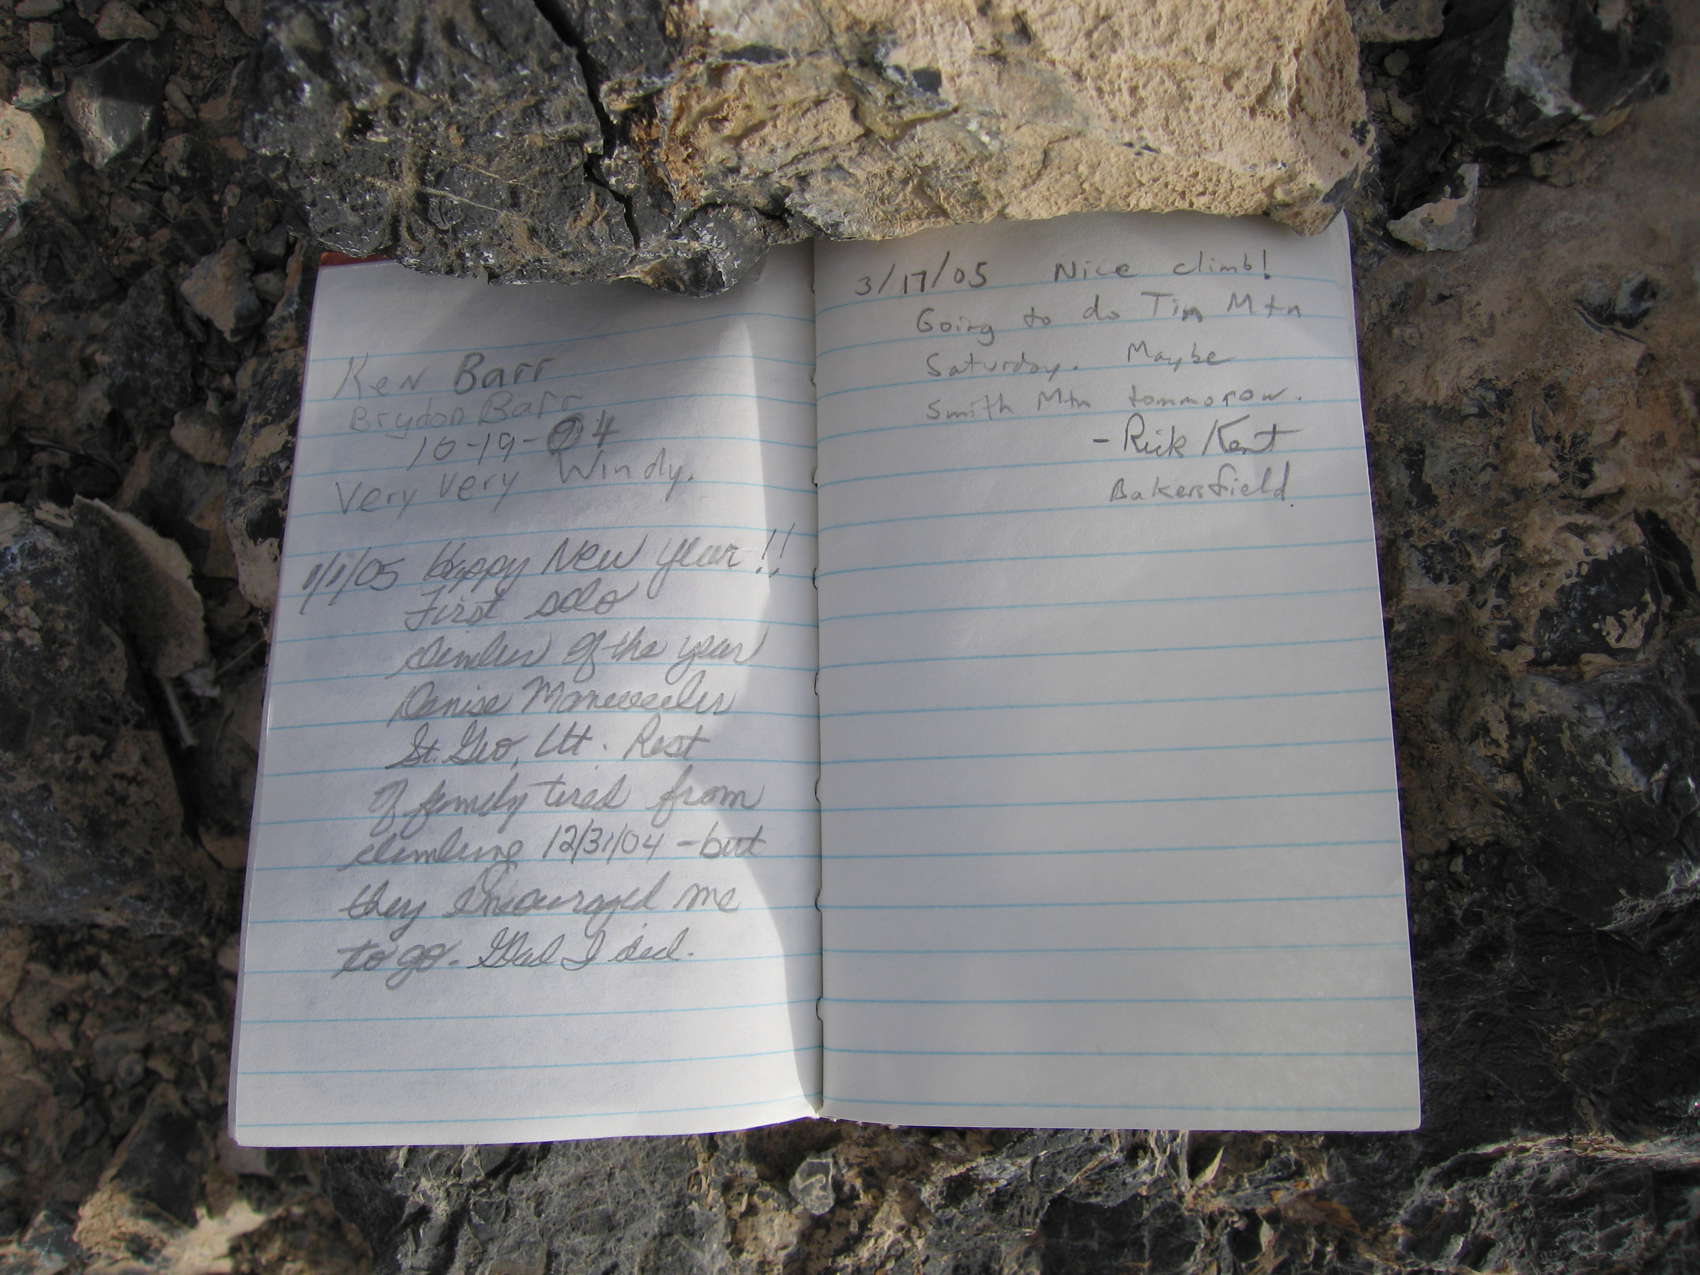 Ken Barr
Brydon Barr
10-19-04
Very very Windy.
1/1/05 Happy New Year!!
First solo
climber of the year
Denise
St. Geo, Ut. Rest
of family tired from
climbing 12/31/04 - but
they encouraged me
to go. Glad I did.
3/17/05 Nice climb!
Going to do Tin Mtn
Saturday. Maybe
Smith Mtn tommorow.
- Rick Kent
Bakersfield